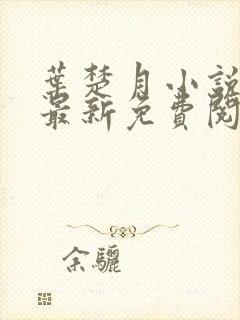 葉楚月小說
最新免費閱
余驪